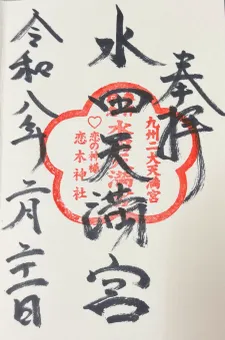 奉拝
水田天満宮
九州二大天満宮
恋の神様
恋木神社
令和八年二月二十一日